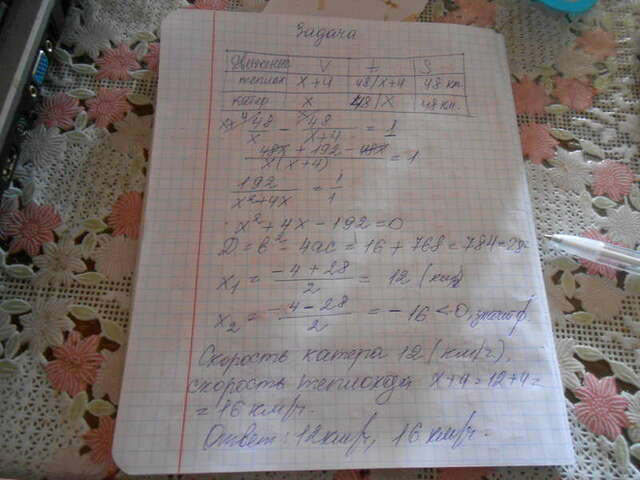 Задача
Движение V t S
теплох x+4 48/x+4 48 км.
катер x 48/x 48 км.
48/x - 48/x+4 = 1
48x + 192 - 48x / x(x+4) = 1
192 / x²+4x = 1/1
x²+4x-192=0
D = b² - 4ac = 16 + 768 = 784 = 28²
x₁ = -4+28 / 2 = 12 (км/ч)
x₂ = -4-28 / 2 = -16 < 0,
Скорость катера 12 (км/ч),
скорость теплохода x+4=12+4=
= 16 км/ч.
Ответ: 12 км/ч, 16 км/ч.